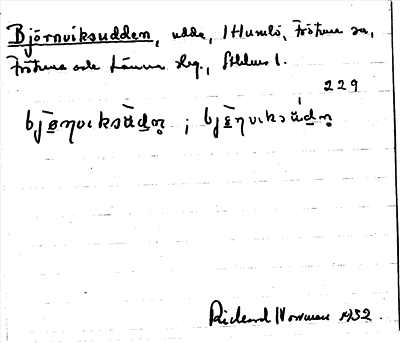 Björnviksudden, udde, i Humlö, Frötuna sn,
Frötuna och Länna skg., Sthlms l.
229
bjɵ̄ηviksádn̥ ; bjɛ̄ηviksádn̥
Rickard Norrman 1932.